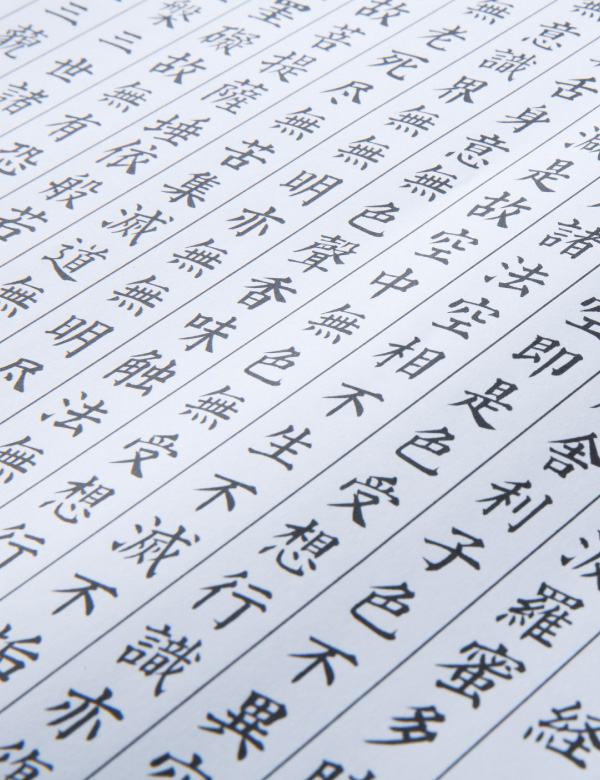 経
波羅蜜多時
舎利子色不異空
空即是色受想行識亦復
諸法空相不生不滅不垢
減是故空中無色無受想行
舌身意無色聲香味触法無
無意識界無無明亦無無明尽
無老死尽無苦集滅道無
故菩提薩埵依般若
罣礙故無有恐
槃三世諸
三藐